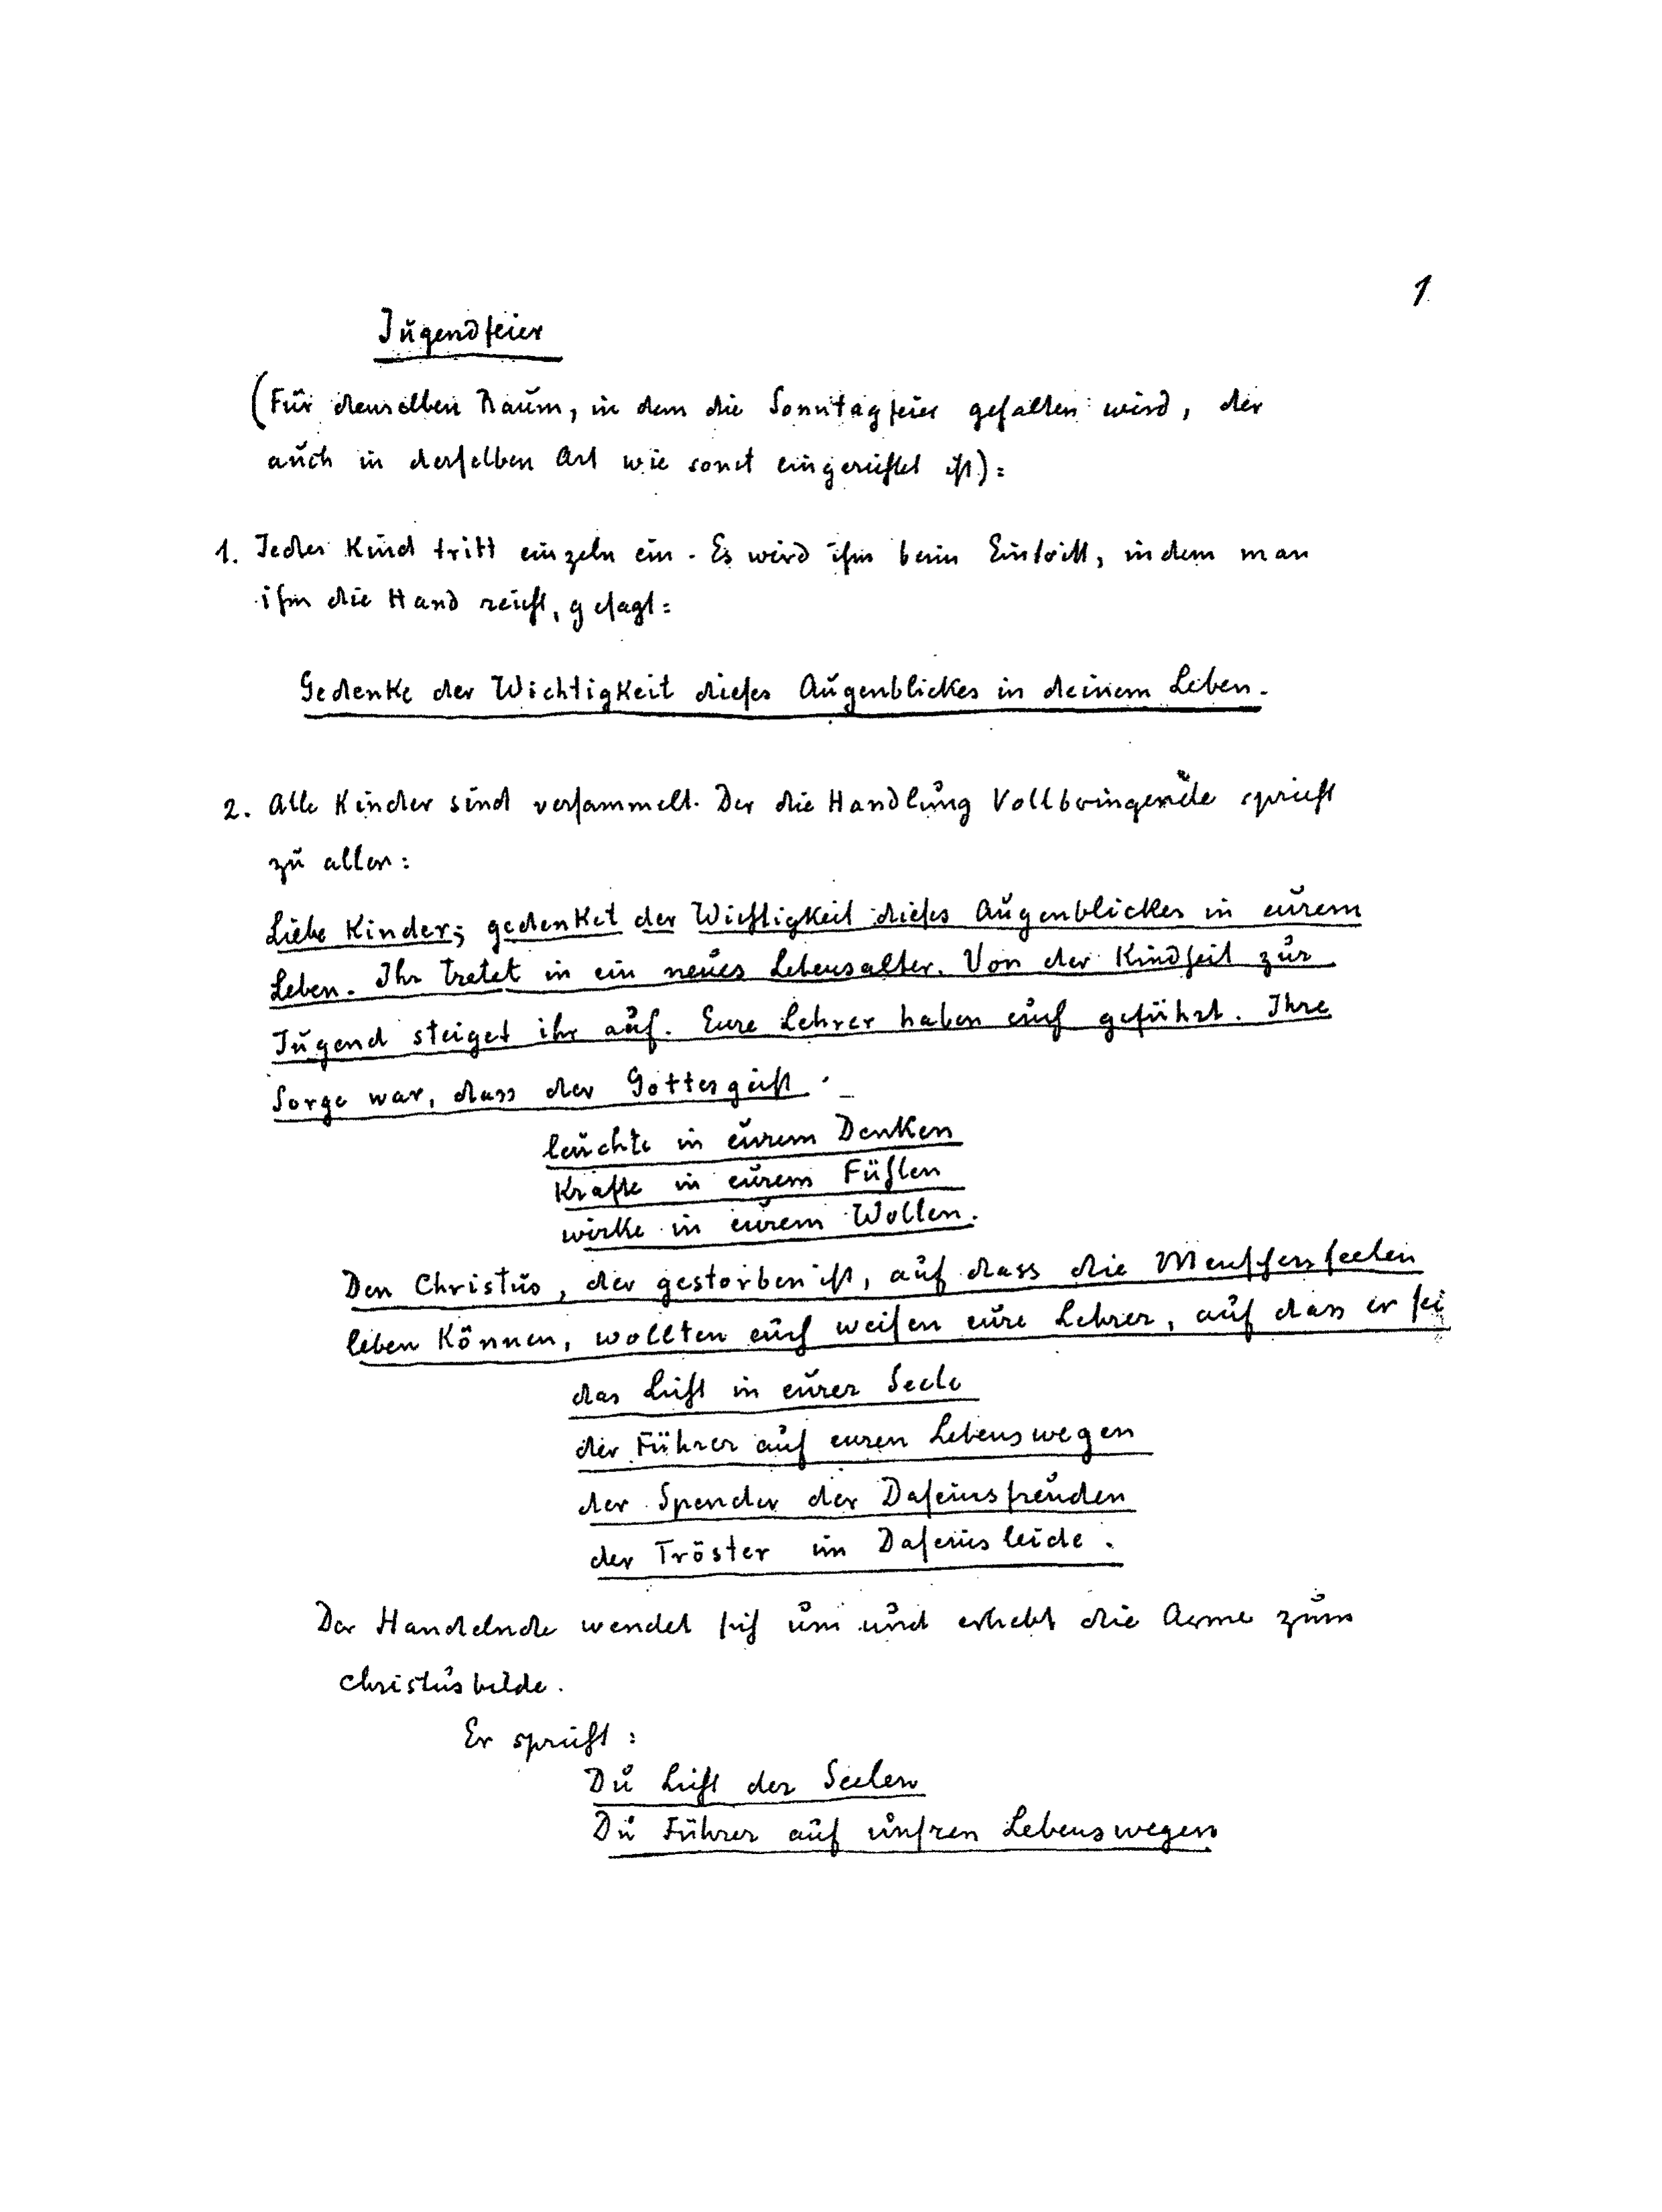 1
Jugendfeier
(Für denselben Raum, in dem die Sonntagfeier gehalten wird, der
auch in derselben Art wie sonst eingerichtet ist):
1. Jedes Kind tritt einzeln ein. Es wird ihm beim Eintritt, indem man
ihm die Hand reicht, gesagt:
Gedenke der Wichtigkeit dieses Augenblickes in deinem Leben.
2. Alle Kinder sind versammelt. Der die Handlung Vollbringende spricht
zu allen:
Liebe Kinder; gedenket der Wichtigkeit dieses Augenblickes in eurem
Leben. Ihr tretet in ein neues Lebensalter. Von der Kindheit zur
Jugend steiget ihr auf. Eure Lehrer haben euch geführt. Ihre
Sorge war, dass der Gottesgeist
leuchte in eurem Denken
Krafte in eurem Fühlen
wirke in eurem Wollen.
Den Christus, der gestorben ist, auf dass die Menschenseelen
leben Können, wollten euch weisen eure Lehrer, auf dass er sei
das Licht in eurer Seele
der Führer auf euren Lebenswegen
der Spender der Daseinsfreuden
der Tröster im Daseinsleide.
Der Handelnde wendet sich um und erhebt die Arme zum
Christusbilde.
Er spricht:
Du Licht der Seelen
Du Führer auf unsren Lebenswegen